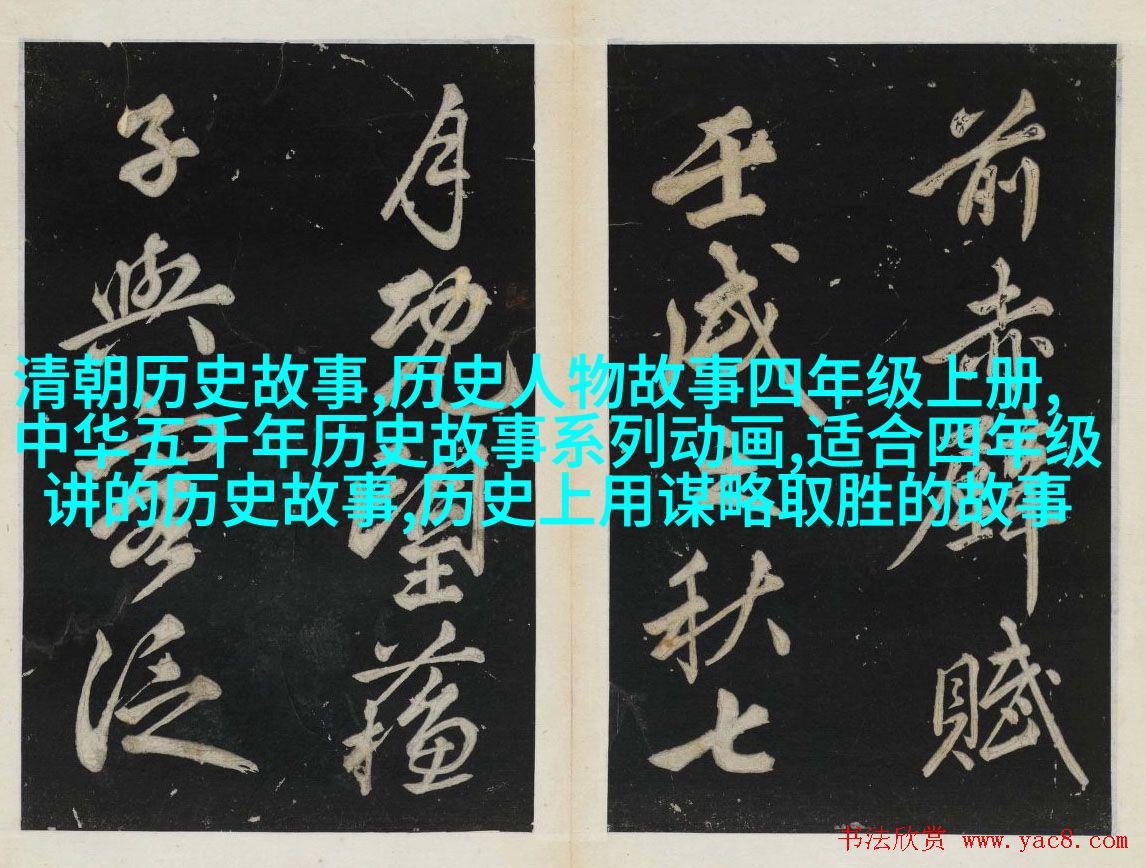 前赤壁賦
壬戌之秋七
月既望蘓
子與客泛
清朝历史故事,历史人物故事四年级上册,
中华五千年历史故事系列动画,适合四年级
讲的历史故事,历史上用谋略取胜的故事
书法欣赏 www.yac8.com